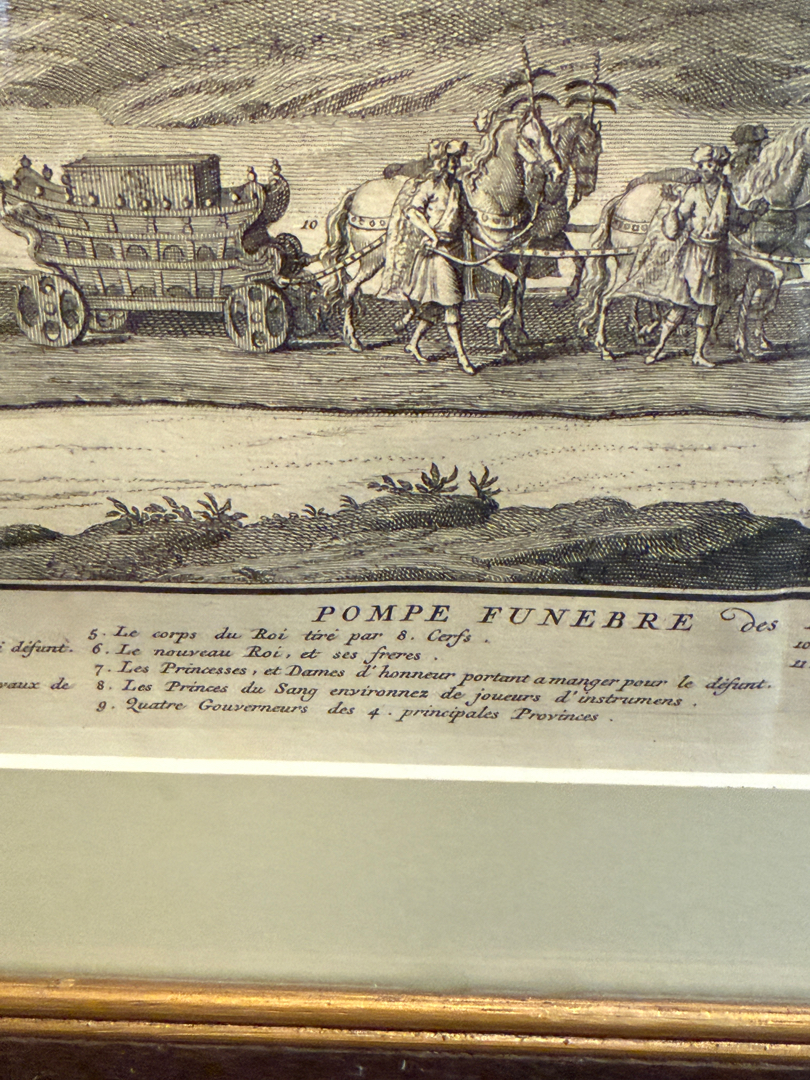 10
POMPE FUNEBRE des
5. Le corps du Roi tiré par 8. Cerfs.
défunt. 6. Le nouveau Roi, et ses freres. 10
7. Les Princesses, et Dames d'honneur portant a manger pour le défunt. 11
vaux de 8. Les Princes du Sang environnez de joueurs d'instrumens.
9. Quatre Gouverneurs des 4. principales Provinces.